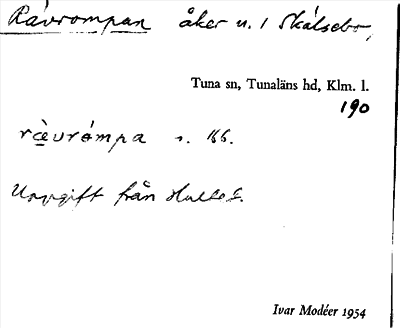 Rävrompan åker u. 1 Skälsebo,
Tuna sn, Tunaläns hd, Klm. l.
190
rævrómpa s. 166.
Uppgift från
Ivar Modéer 1954